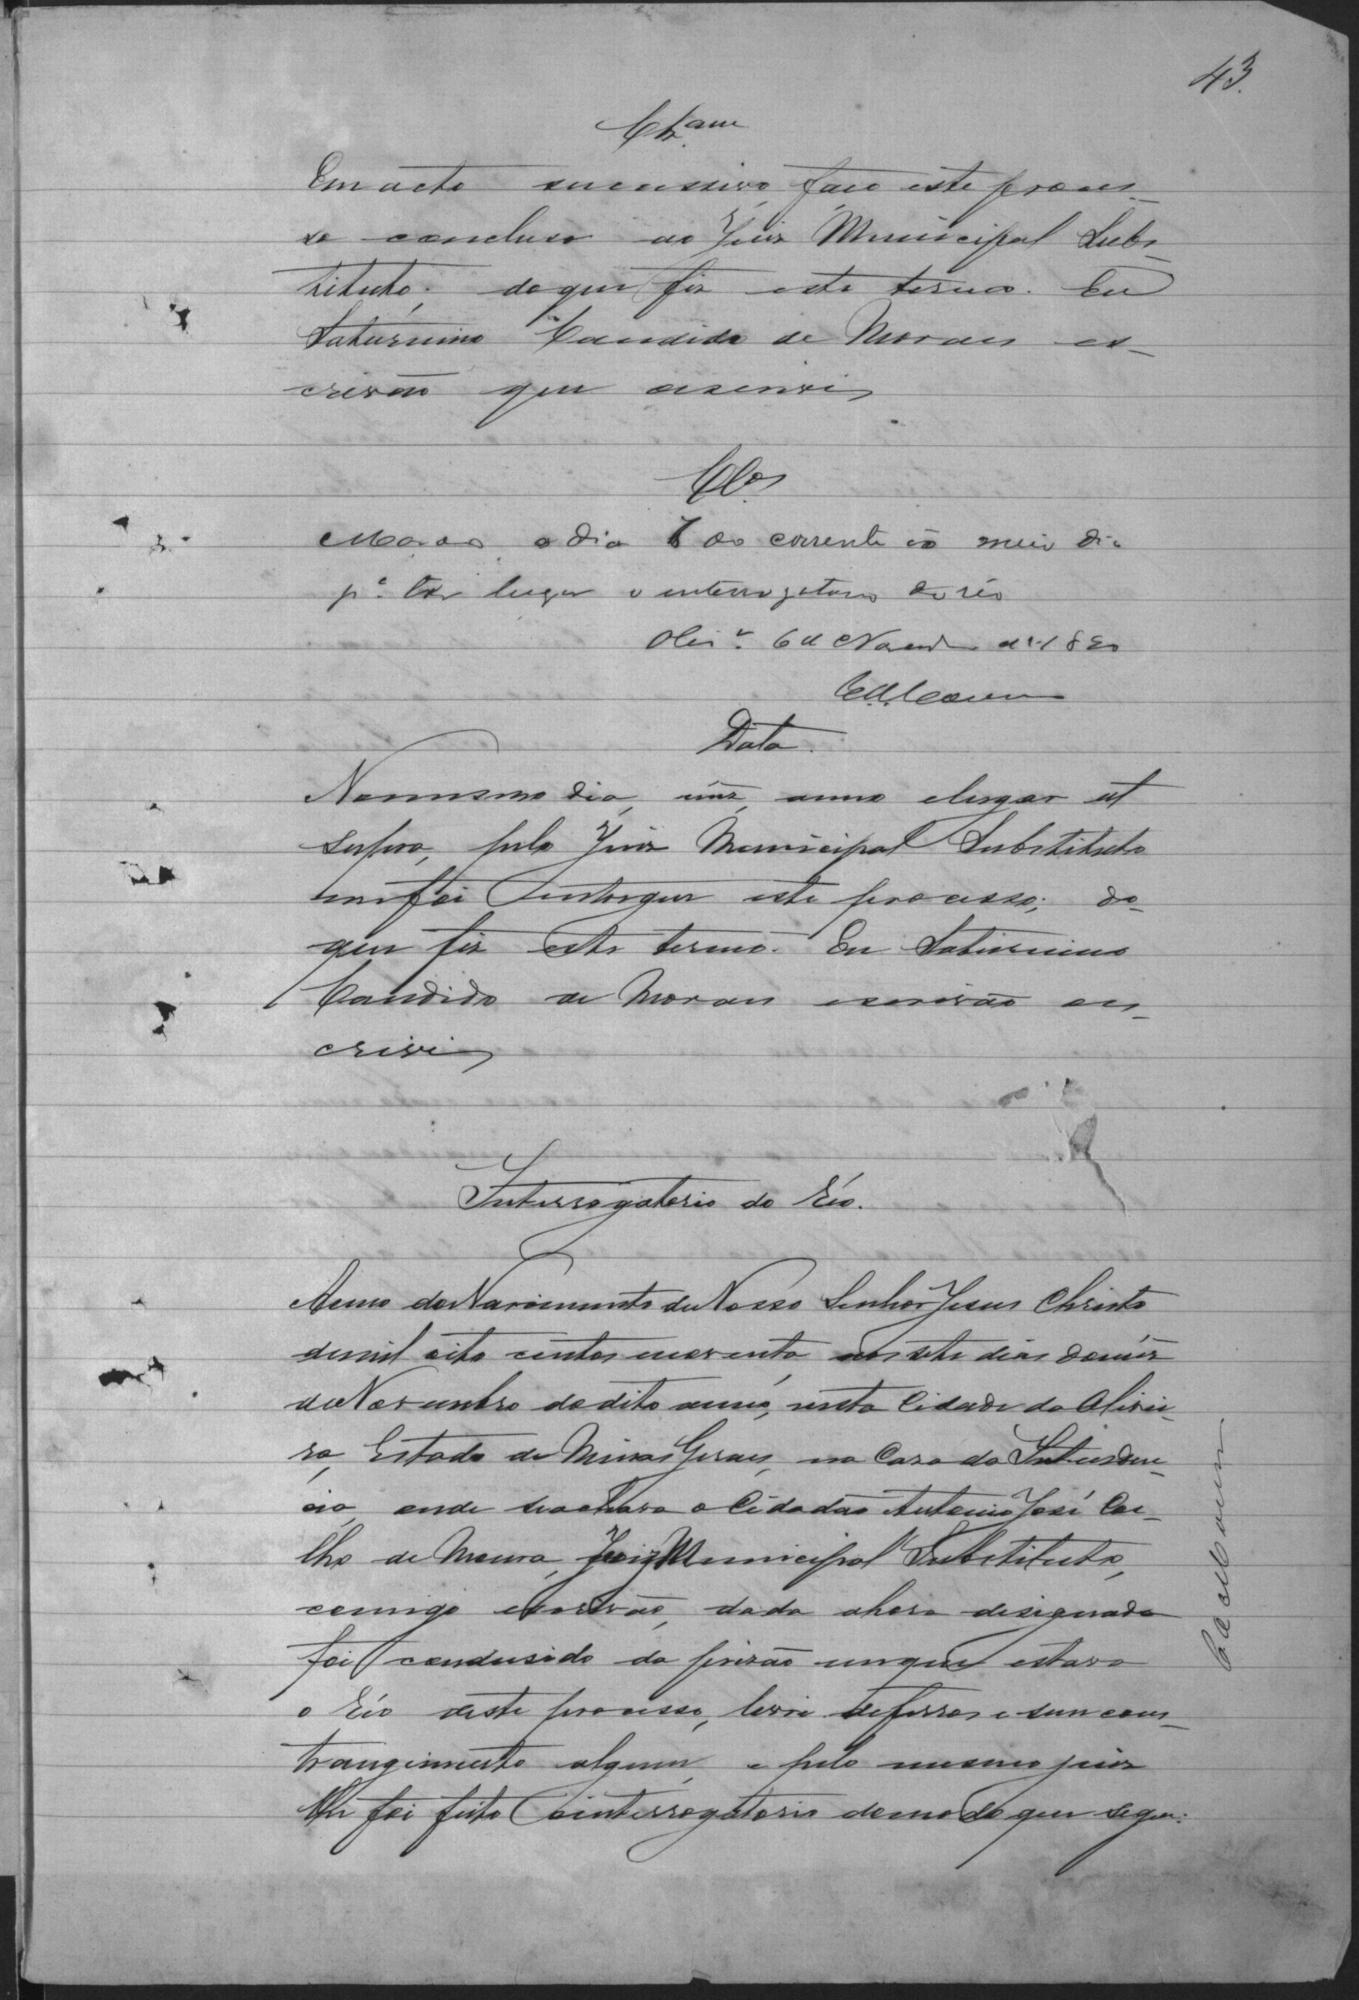 43.
Clz.am
Em acto successivo, faço este proces-
so concluso ao Juiz Municipal Subs-
tituto; do que fiz este termo. Eu
Saturnino Candido de Moraes es-
crivão que escrevi
Clos
Marco o dia 7 do corrente ao meio dia
pa. ter lugar o interrogatorio do réo
Olivra. 6 de Novembro de 1890
Data.
No mesmo dia, mez, anno e lugar ut
supra, pelo Juiz Municipal Substituto
me foi entregue este processo; do
que fiz este termo. Eu Saturnino
Candido de Moraes escrivão es-
crivi
Interrogatorio do Réo.
Anno do Nascimento de Nosso Senhor Jesus Christo
de mil oito centos e noventa, aos sete dias do mez
de Novembro do dito anno, nesta Cidade da Olivei-
ra, Estado de Minas Geraes, na Casa da Intenden-
cia, onde se achava o Cidadão Antonio José Coe-
lho de Moura, Juiz Municipal Substituto,
comigo escrivão, dada a hora designada
foi condusido da prizão em que estava
o Réo deste processo, livre de ferros e sem cons-
trangimento algum, e pelo mesmo juiz
lhe foi feito o interrogatorio do modo que segue: